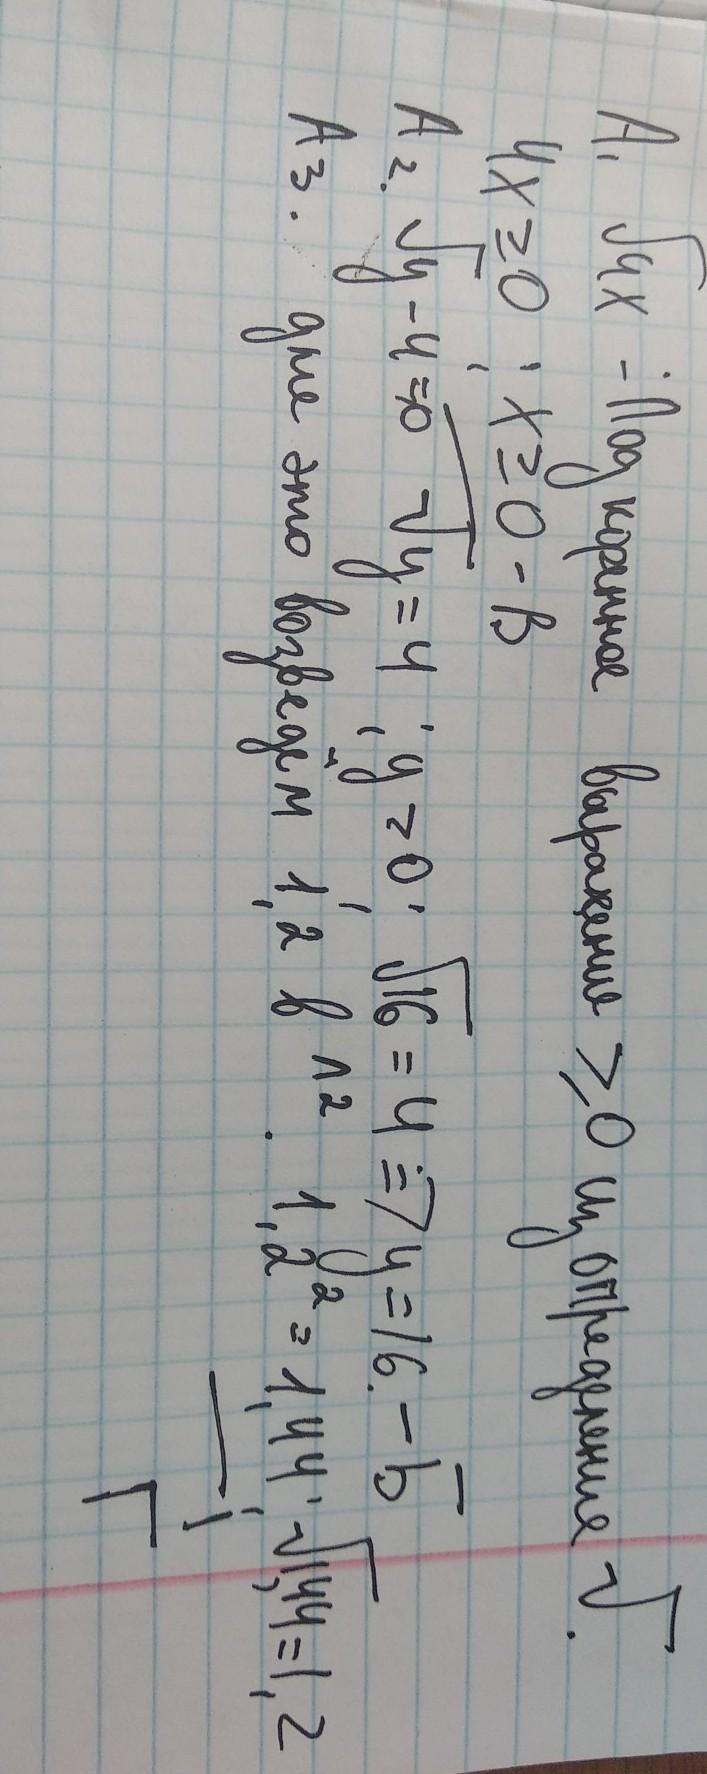 А1 √4x - Подкоренное выражение ≥0 из определения √.
4x ≥ 0 ; x ≥ 0 - В
А2. √y - 4 = 0 √y = 4 ; y ≥ 0; √16 = 4 => y = 16. - Б
А3. для это возведём 1,2 в ^2. 1,2² = 1,44; √1,44 = 1,2
Г